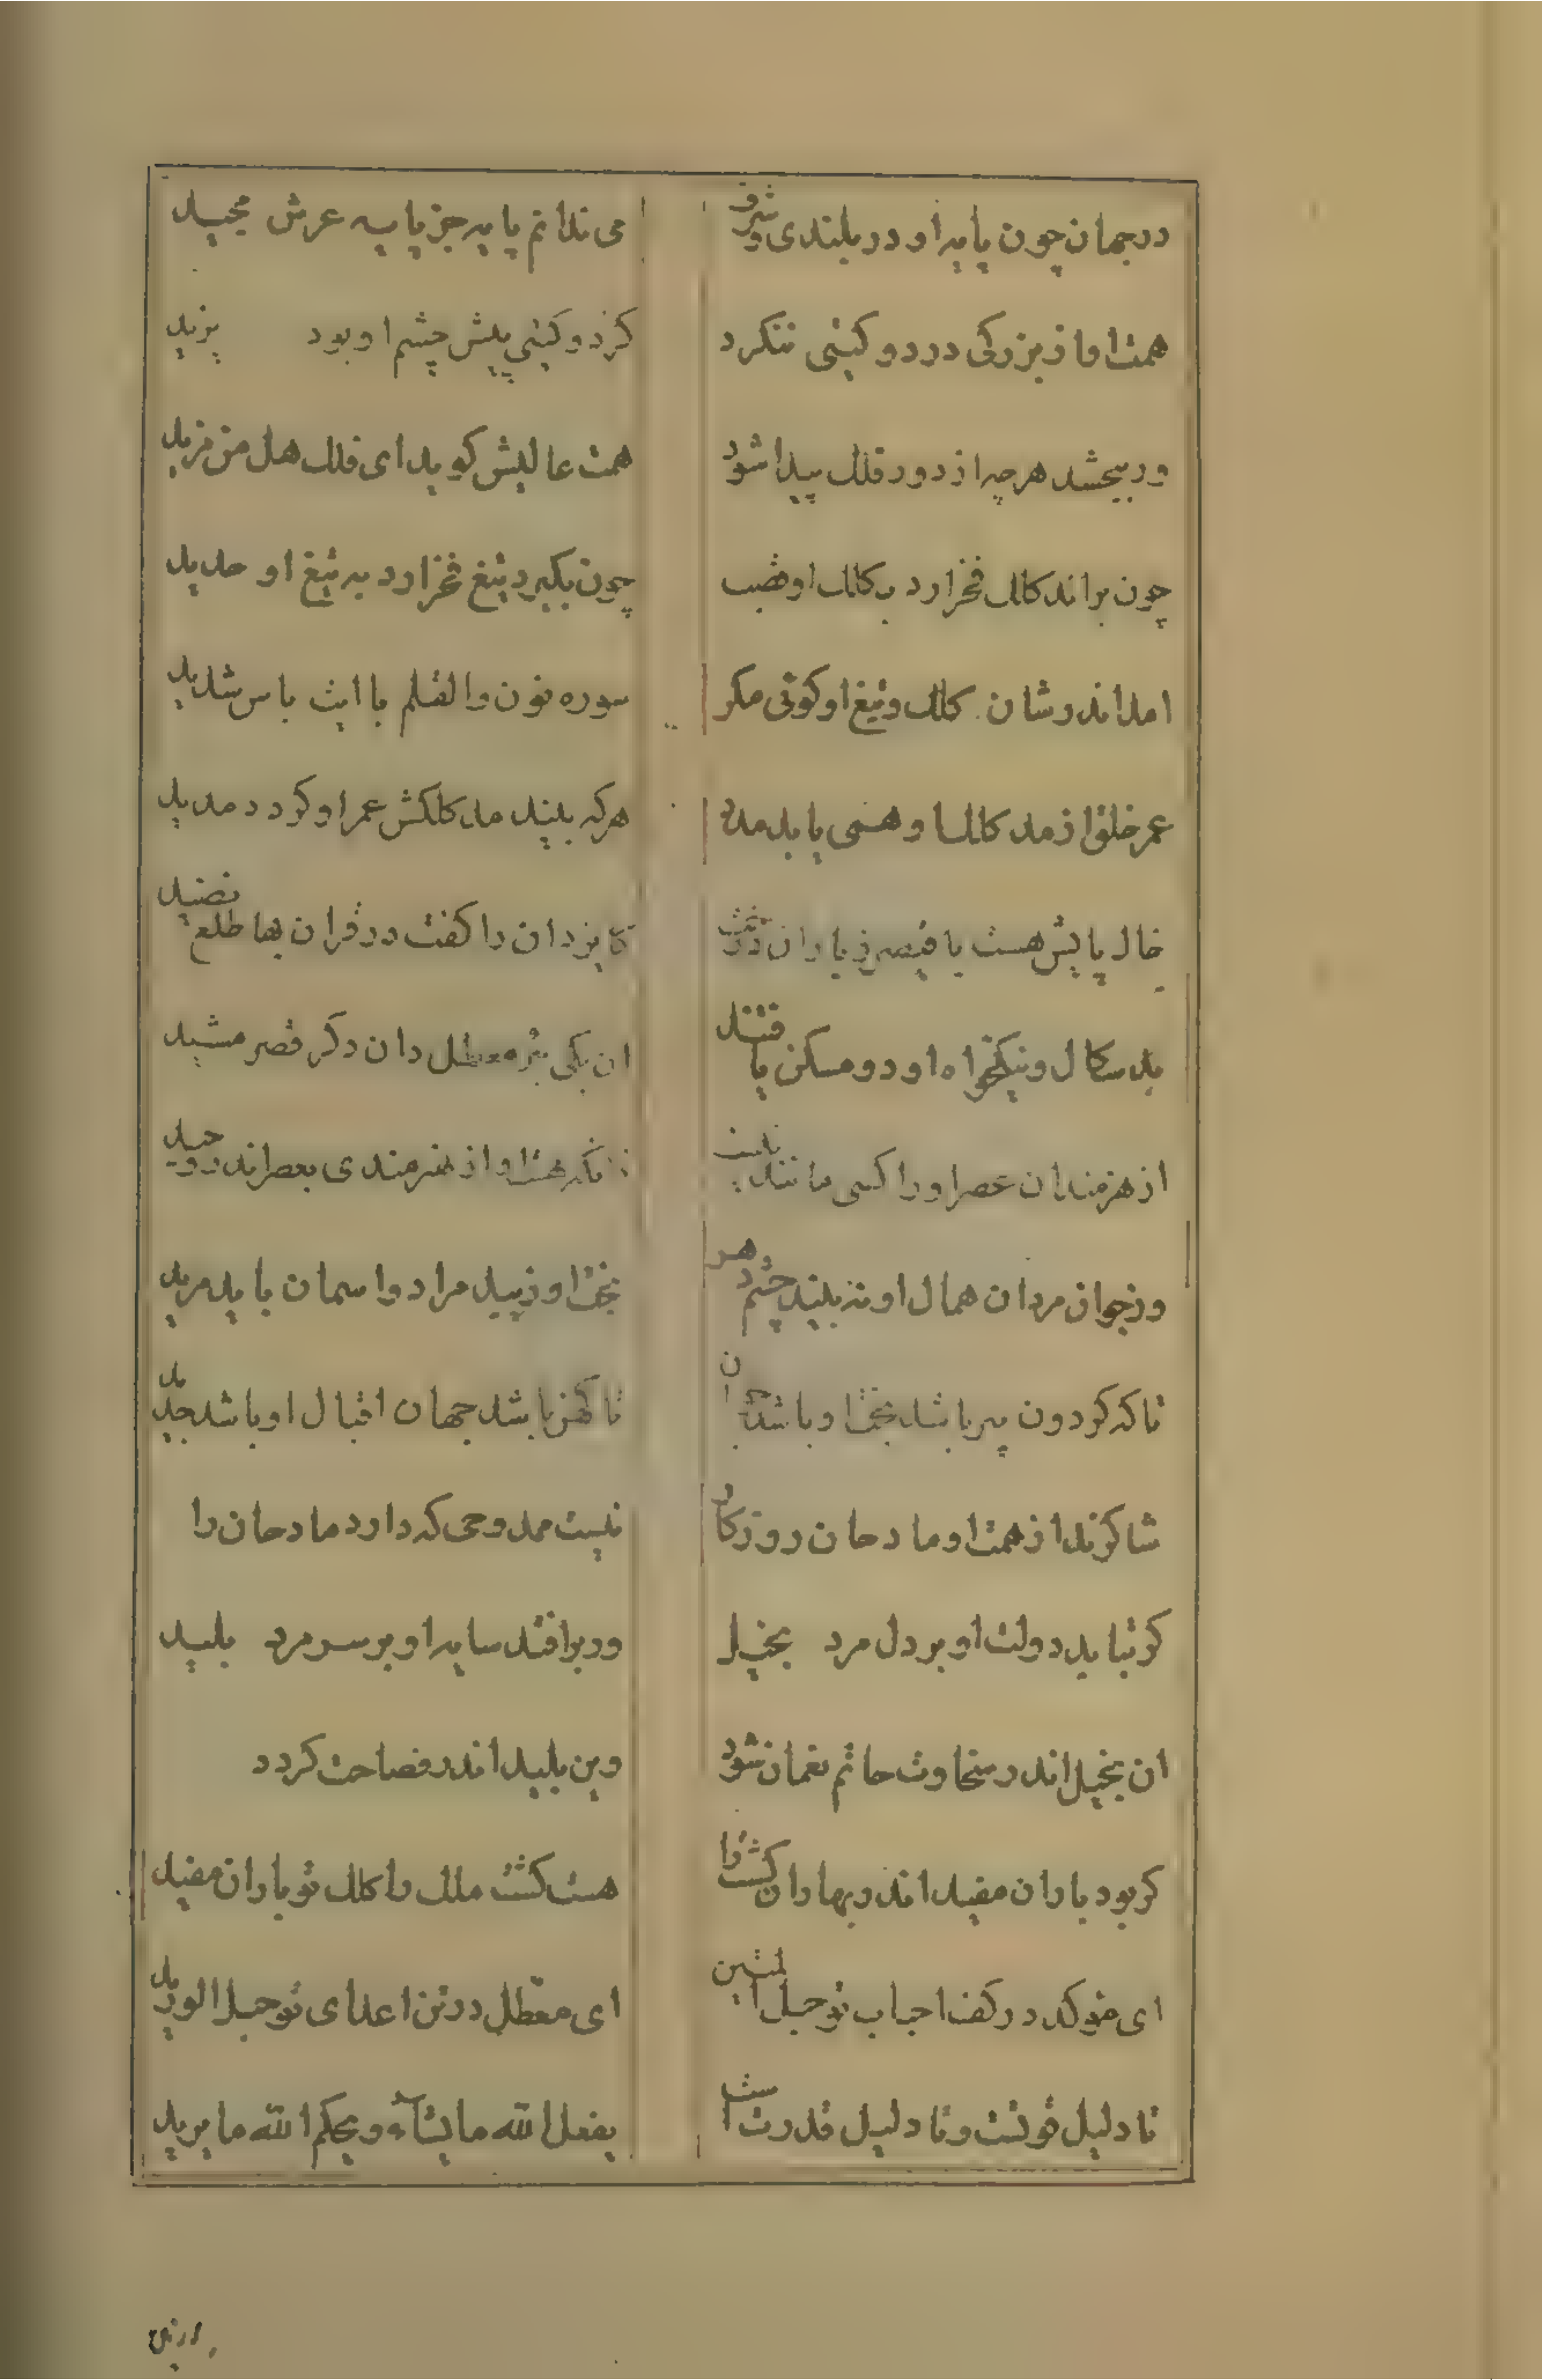 درجهان چون پایه او در بلندی و شرف
می ندانم پایه جز پایه عرش مجید
همت او از بزرکی در دو کیتی ننکرد
کز دو کیتی پیش چشم او بود پزید
ور ببخشد هرچه از دور فلک پیدا شود
همت عالیش کوید ای فلک هل من مزید
چون براند کلک فخر ارد بکلک او قضیب
چون بکیرد تیغ فخر ارد به تیغ او حدید
امد اندر شان کلک و تیغ او کوئی مکر
سوره نون والقلم با ایت باس شدید
عمر خلق از مد کلک او همی یابد مدد
هرکه بیند مد کلکش عمر او کردد مدید
خاک پایش هست با قیمت
کایزدان را کفت در قران لها طلع نضید
بد سکال و نیکخواه او دو مسکن یافتند
ان یکی بئر معطل دان دکر قصر مشید
از هنرمندان عصر او را کسی مانند نیست
زانکه هست او از هنرمندی بعصر اندر وحید
وز جوان مردان همال او نه بیند چشم دهر
بخت او زیبد مراد و اسمان باید مرید
تا که کردون پیر باشد بخت او باشد جوان
تا کهن باشد جهان اقبال او باشد جدید
شاکرند از همت او مادحان روزکار
نیست ممدوحی که دارد مادحان را
کر بتابد دولت او بر دل مرد بخیل
ور برافتد سایه او بر سر مرد بلید
ان بخیل اندر سخاوت حاتم نعمان شود
وین بلید اندر فصاحت کردد
کر بود باران مفید اندر بهاران کشت را
هست کشت ملک را کلک تو باران مفید
ای موکد در کف احباب تو حبل المتین
ای معطل در تن اعدای تو حبل الورید
تا دلیل قوتست و تا دلیل قدرتست
یفعل الله ما یشآء و یحکم الله ما یرید